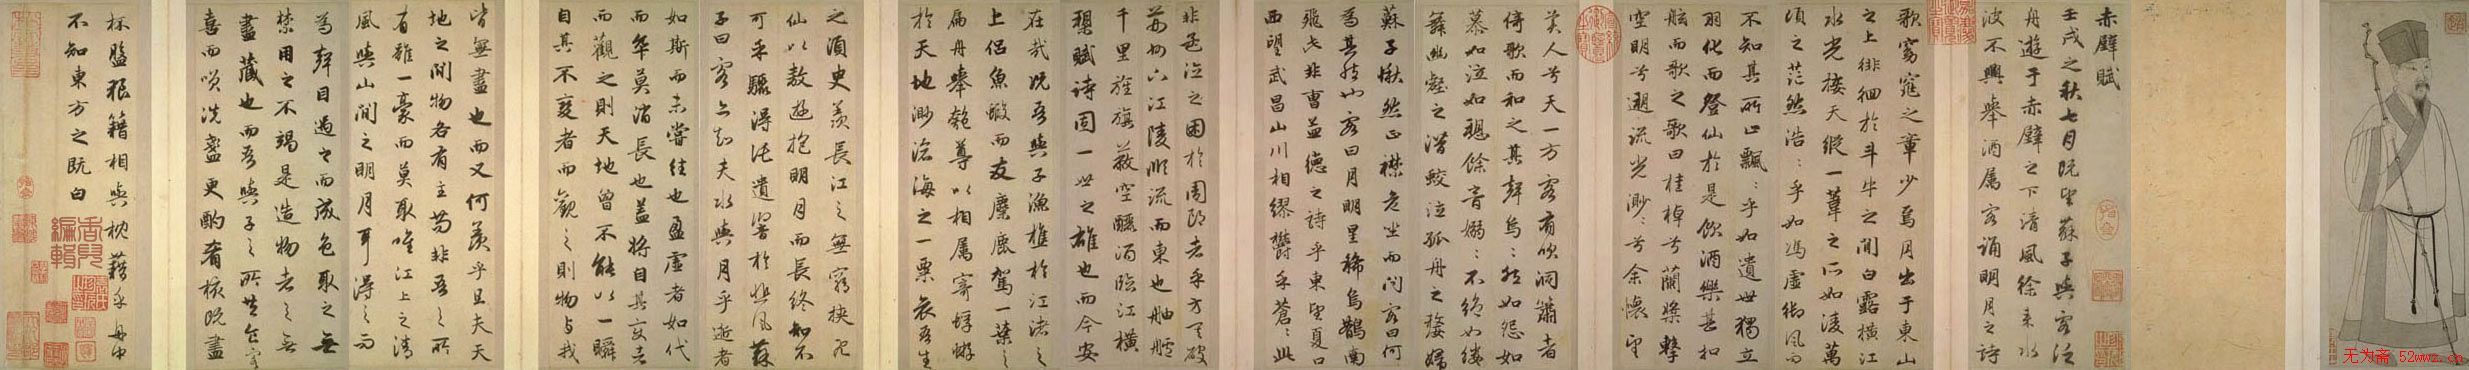 赤壁賦
壬戌之秋七月既望蘇子與客泛
舟遊于赤壁之下清風徐來水
波不興舉酒屬客誦明月之詩
歌窈窕之章少焉月出于東山
之上徘徊於斗牛之間白露橫江
水光接天縱一葦之所如凌萬
頃之茫然浩〻乎如馮虛御風而
不知其所止飄〻乎如遺世獨立
羽化而登仙於是飲酒樂甚扣
舷而歌之歌曰桂棹兮蘭槳擊
空明兮遡流光渺〻兮余懷望
美人兮天一方客有吹洞簫者
倚歌而和之其聲嗚〻然如怨如
慕如泣如訴餘音嫋〻不絕如縷
舞幽壑之潛蛟泣孤舟之嫠婦
蘇子愀然正襟危坐而問客曰何
為其然也客曰月明星稀烏鵲南
飛此非曹孟德之詩乎東望夏口
西望武昌山川相繆鬱乎蒼〻此
非孟德之困於周郎者乎方其破
荊州下江陵順流而東也舳艫
千里旌旗蔽空釃酒臨江橫
槊賦詩固一世之雄也而今安
在哉況吾與子漁樵於江渚之
上侶魚蝦而友麋鹿駕一葉之
扁舟舉匏尊以相屬寄蜉蝣
於天地渺滄海之一粟哀吾生
之須臾羨長江之無窮挾飛
仙以敖遊抱明月而長終知不
可乎驟得託遺響於悲風蘇
子曰客亦知夫水與月乎逝者
如斯而未嘗往也盈虛者如代
而卒莫消長也蓋將自其變者
而觀之則天地曾不能以一瞬
自其不變者而觀之則物與我
皆無盡也而又何羨乎且夫天
地之間物各有主苟非吾之所
有雖一豪而莫取唯江上之清
風與山間之明月耳得之而
為聲目遇之而成色取之無
禁用之不竭是造物者之無
盡藏也而吾與子之所共食客
喜而笑洗盞更酌肴核既盡
杯盤狼籍相與枕藉乎舟中
不知東方之既白
无为斋 52wwz.cn